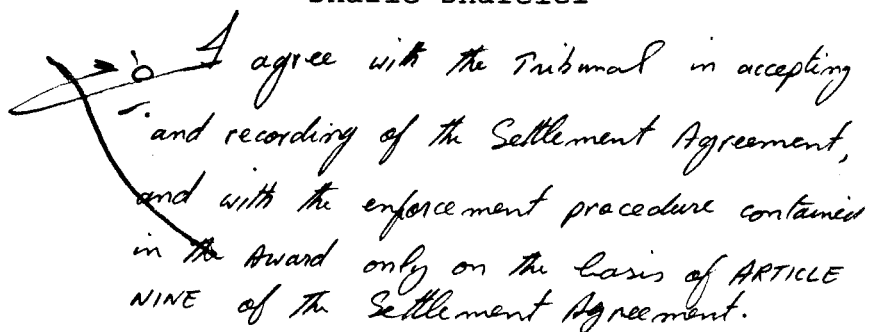 I agree with the Tribunal in accepting
and recording of the Settlement Agreement,
and with the enforcement procedure contained
in the Award only on the basis of ARTICLE
NINE of the Settlement Agreement.